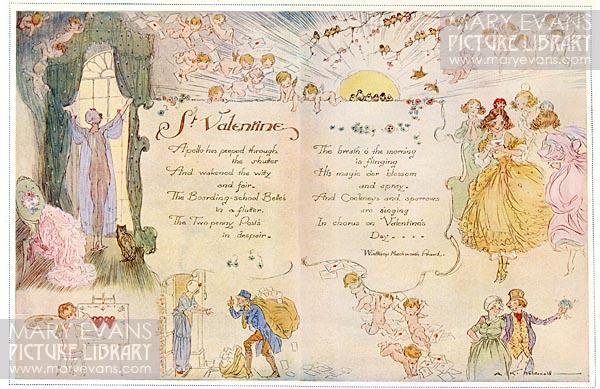 MARY EVANS
PICTURE LIBRARY
www.maryevans.com
St Valentine
Apollo has peeped through
the shutter
And wakened the witty
and fair.
The Boarding-school Belle's
in a flutter,
The Two-penny Post's
in despair.
The breath o' the morning
is flinging
His magic o'er blossom
and spray.
And Cockneys and sparrows
are singing
In chorus on Valentine's
Day - - - -
Winthrop Mackworth Praed.
MARY EVANS
PICTURE LIBRARY
www.maryevans.com
A. K.